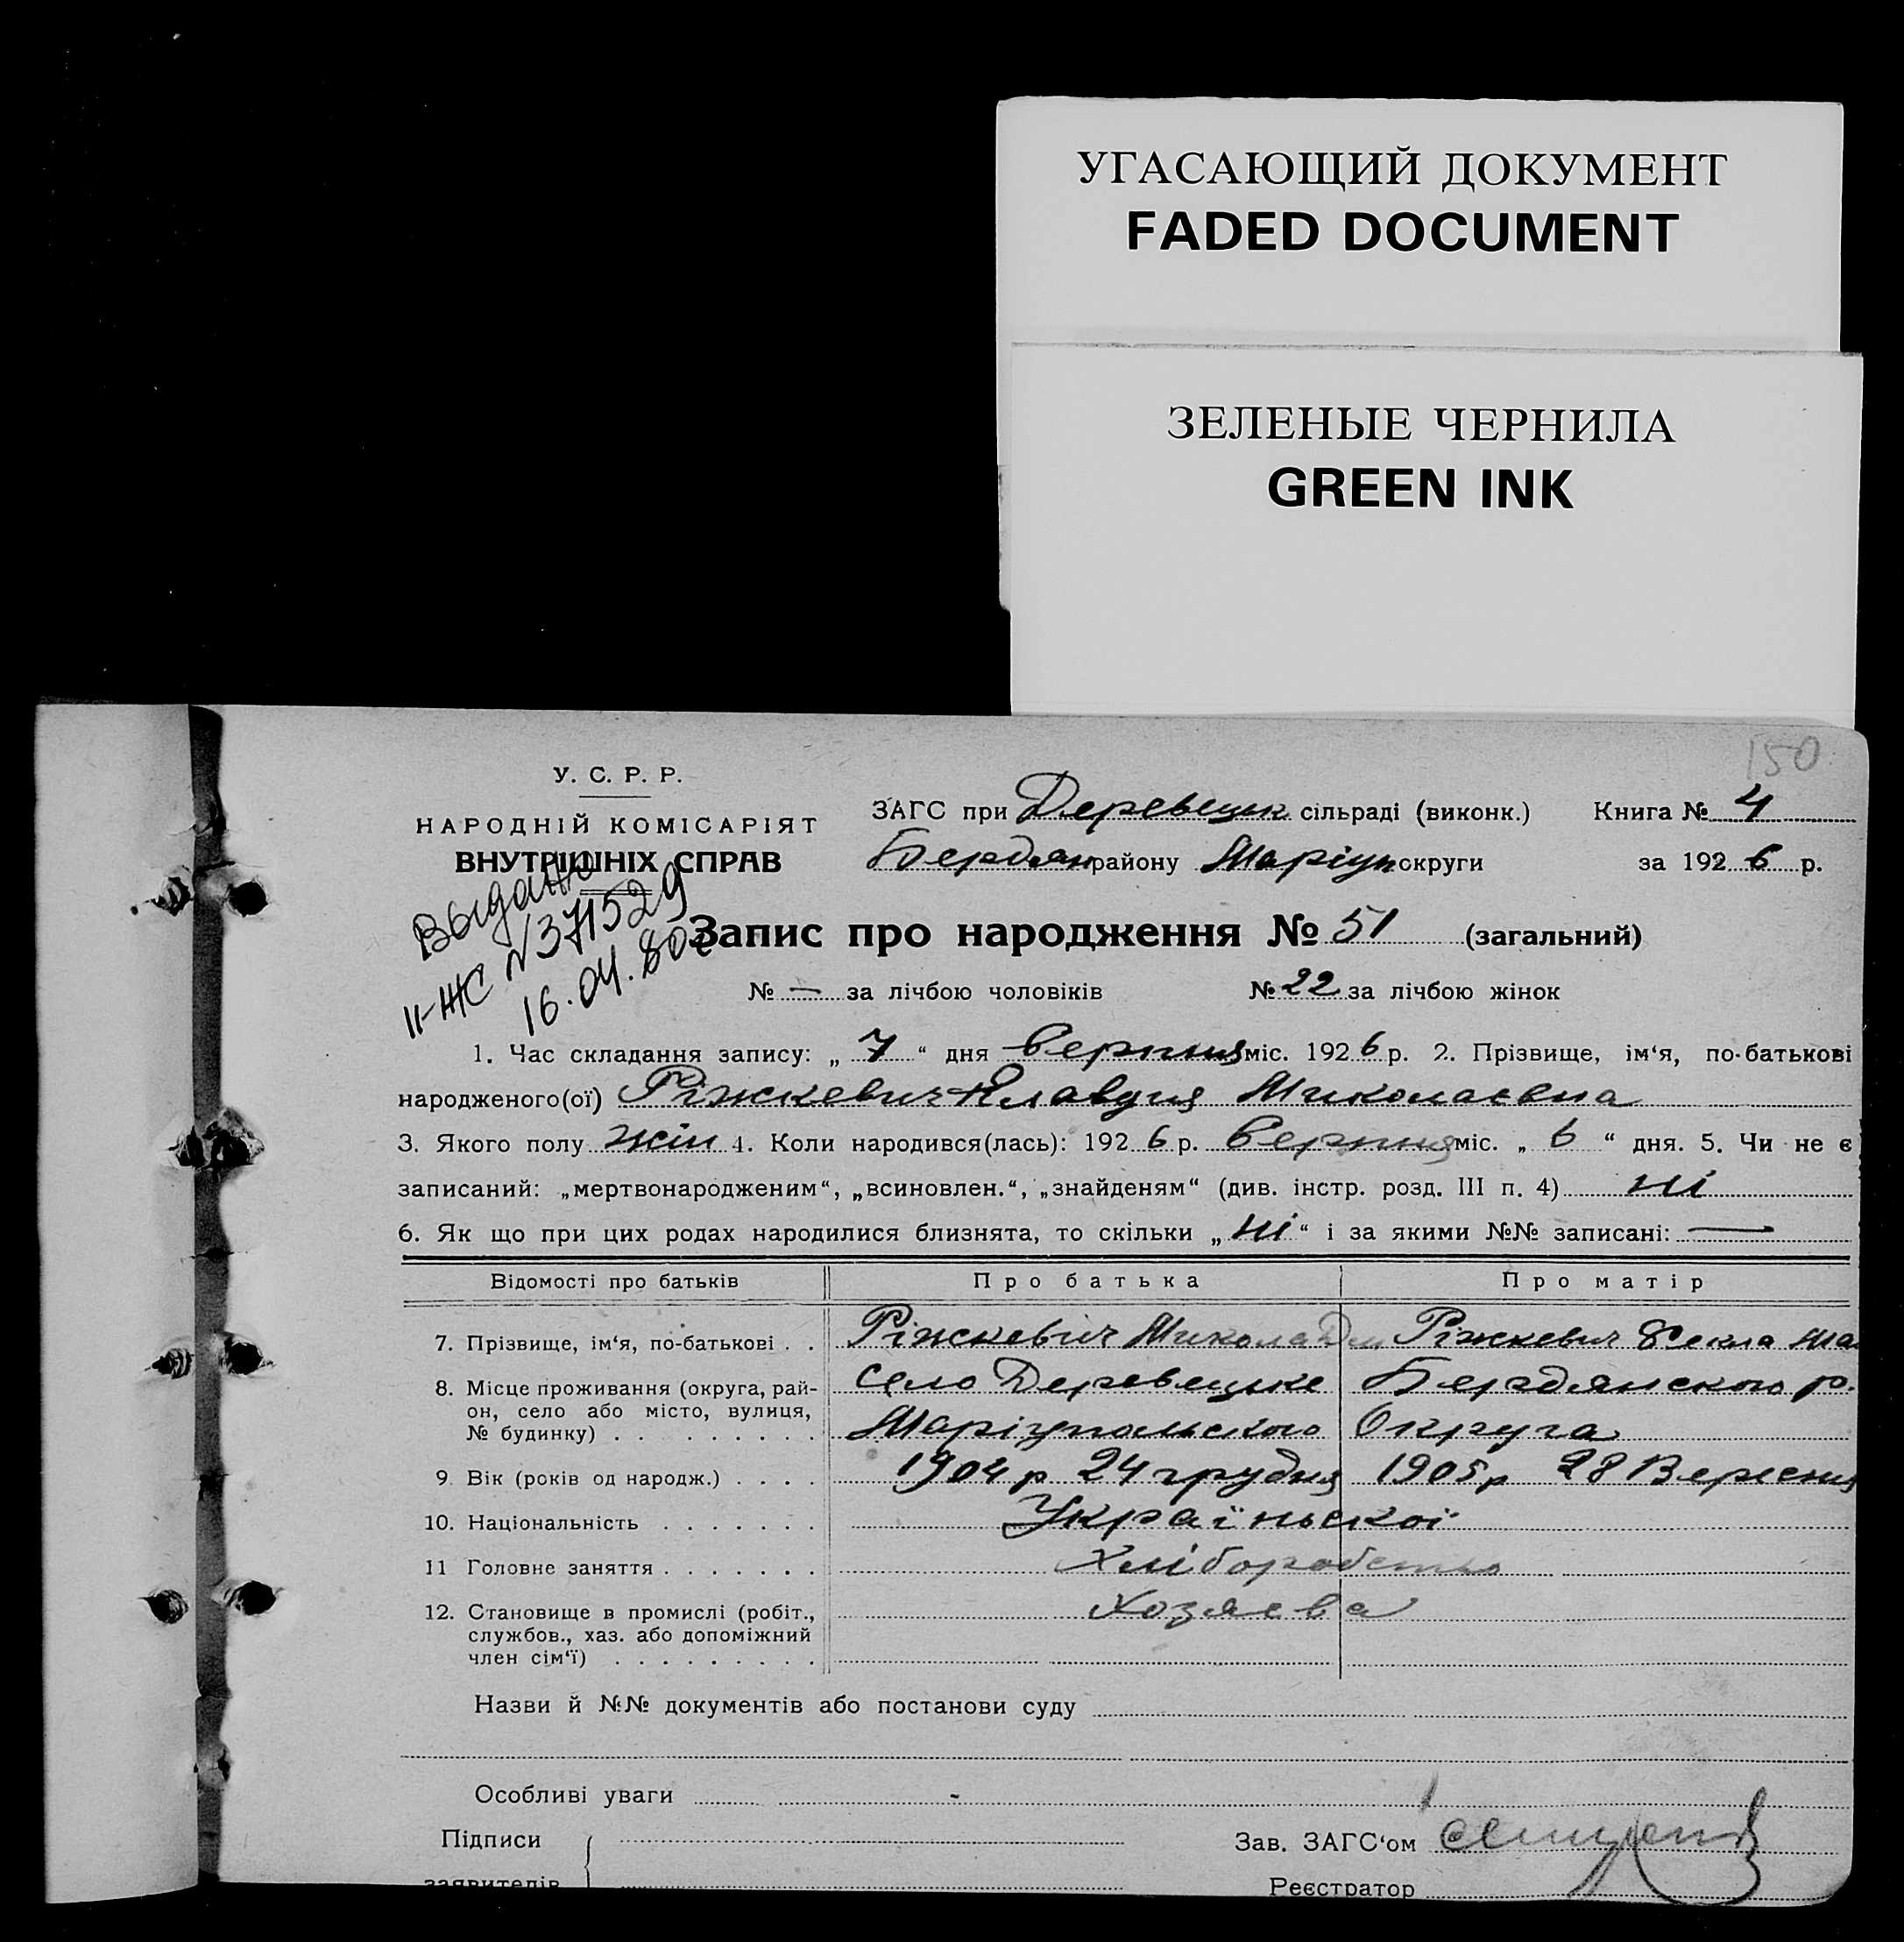 УГАСАЮЩИЙ ДОКУМЕНТ
FADED DOCUMENT
ЗЕЛЕНЫЕ ЧЕРНИЛА
GREEN INK
150
У. С. Р. Р.
НАРОДНІЙ КОМІСАРІЯТ
ВНУТРІШНІХ СПРАВ
ЗАГС при Деревецк. сільраді (виконк.) Книга № 4
Бердян району Маріуп округи за 1926 р.
Выдано
II-ЖС N371529
16.04.80г
Запис про народження № 51 (загальний)
№ — за лічбою чоловіків № 22 за лічбою жінок
1. Час складання запису: „ 7 “ дня міс. 1926 р. 2. Прізвище, ім‘я, по-батькові
народженого(ої) Ріжкевич Клавдия Миколаєвна
3. Якого полу жін 4. Коли народився(лась): 1926 р. міс. „ 6 “ дня. 5. Чи не є
записаний: „мертвонародженим“, „всиновлен.“, „знайденям“ (див. інстр. розд. III п. 4) ні
6. Як що при цих родах народилися близнята, то скільки „ ні “ і за якими №№ записані: —
Відомості про батьків Про батька Про матір
7. Прізвище, ім‘я, по-батькові . . Ріжкевич Микола Ріжкевич Фекла Ма
8. Місце проживання (округа, рай- село Деревецьке Бердянського р.
он, село або місто, вулиця,
№ будинку) . . . . . . . . Маріупольського Округа
9. Вік (років од народж.) . . . . 1904 р 24 грудня 1905 р 28 Вересня
10. Національність . . . . . . . Україньскої
11 Головне заняття . . . . . . . Хліборобство
12. Становище в промислі (робіт., Хозяєва
службов., хаз. або допоміжний
член сім‘ї) . . . . . . . . .
Назви й №№ документів або постанови суду
Особливі уваги -
Підписи Зав. ЗАГС‘ом
заявителів Реєстратор